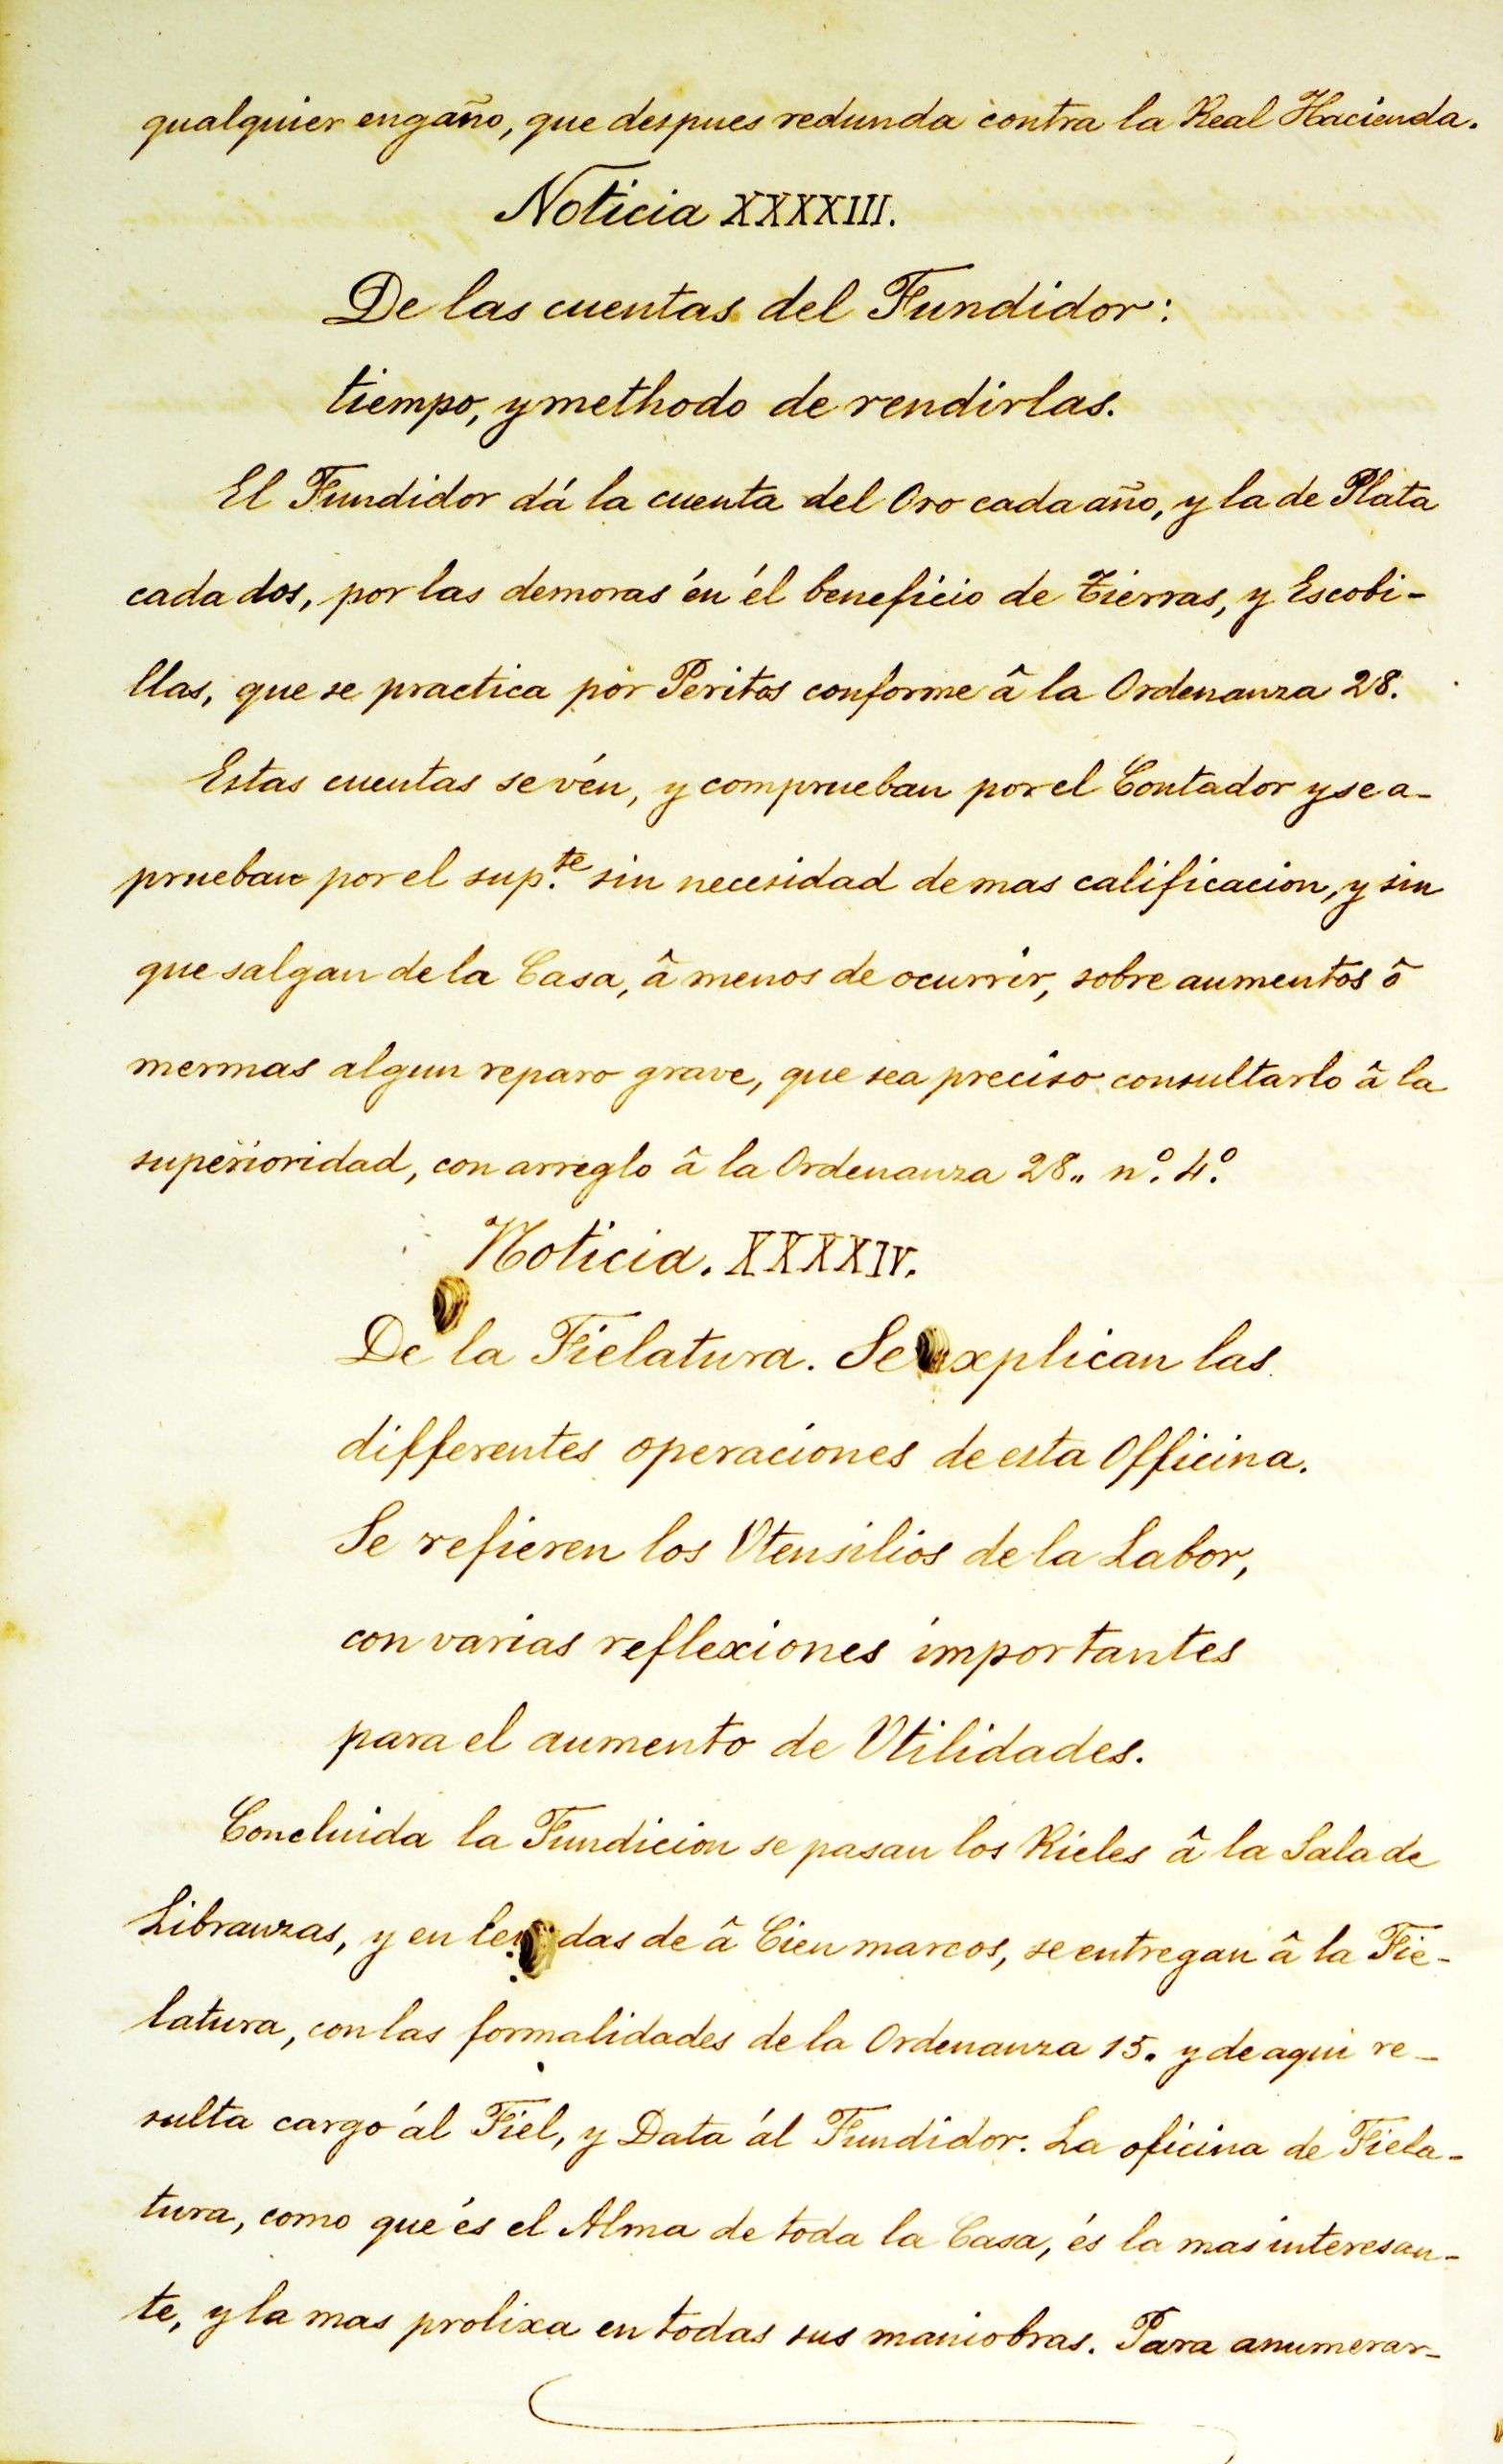 qualquier engaño, que despues redunda contra la Real Hacienda.
Noticia XXXXIII.
De las cuentas del Fundidor:
tiempo, y methodo de rendirlas.
El Fundidor dá la cuenta del Oro cada año, y la de Plata
cada dos, por las demoras én él beneficio de Tierras, y Escobi-
llas, que se practica por Peritos conforme â la Ordenanza 28.
Estas cuentas se vén, y comprueban por el Contador y se a-
prueban por el sup.te sin necesidad de mas calificacion, y sin
que salgan de la Casa, â menos de ocurrir, sobre aumentos ô
mermas algun reparo grave, que sea preciso consultarlo â la
superioridad, con arreglo â la Ordenanza 28,, nº. 4º.
Noticia. XXXXIV.
De la Fielatura. Se explican las
differentes operaciones de esta Officina.
Se refieren los Vtensilios de la Labor,
con varias reflexiones importantes
para el aumento de Vtilidades.
Concluida la Fundicion se pasan los Rieles â la Sala de
Libranzas, y en das de â Cien marcos, se entregan â la Fie-
latura, con las formalidades de la Ordenanza 15. y de aqui re-
sulta cargo ál Fiel, y Data ál Fundidor. La oficina de Fiela-
tura, como que és el Alma de toda la Casa, és la mas interesan-
te, y la mas prolixa en todas sus maniobras. Para anumerar-